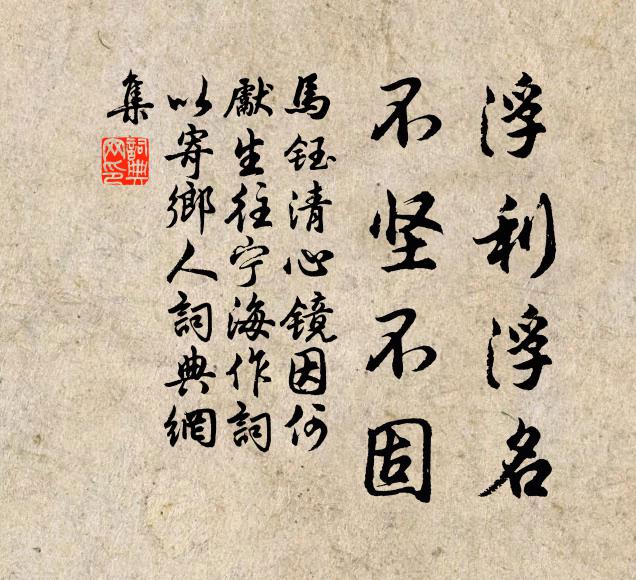 浮利浮名
不坚不固
馬鈺清心镜因何
獻生往宁海作詞
以寄鄉人詞典網
集
詞典
网印